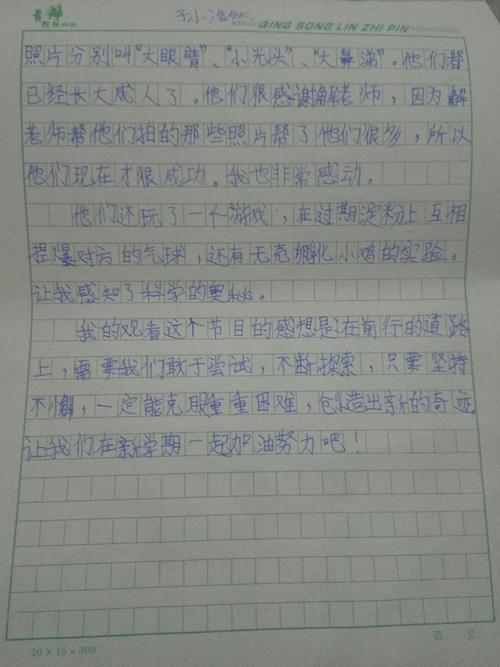 QING SONG LIN ZHI PIN
照片分别叫“大眼臂”、“小光头”、“大鼻涕”。他们都
已经长大成人了。他们很感谢解老师，因为解
老师帮他们拍的那些照片帮了他们很多，所以
他们现在才很成功。我也非常感动。
他们还玩了一个游戏，在过期淀粉上互相
捏爆对方的气球，还有无壳孵化小鸡的实验。
让我感知了科学的奥秘。
我的观看这个节目的感想是在前行的道路
上，需要我们敢于尝试，不断探索，只要坚持
不懈，一定能克服重重困难，创造出新的奇迹，
让我们在新学期一起加油努力吧！
20×15=300
第 页